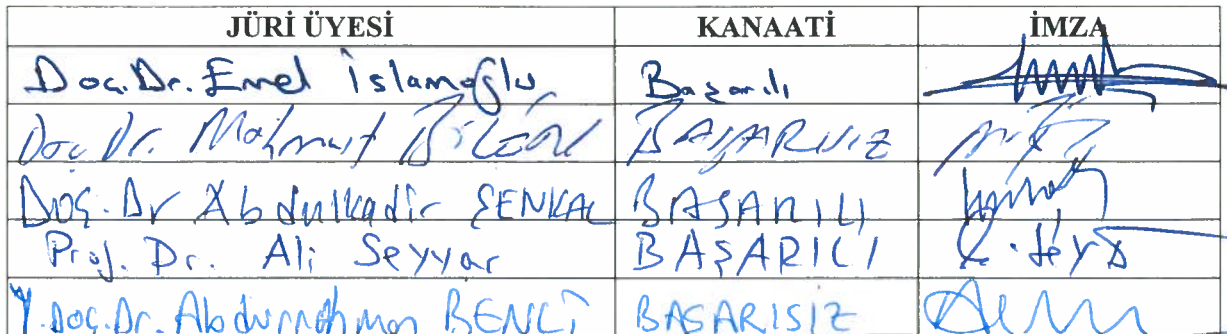 JÜRİ ÜYESİ KANAATİ İMZA
Doç.Dr. Emel İslamoğlu Başarılı
Doç. Dr. Mahmut BİLEN BAŞARISIZ
Doç. Dr Abdulkadir ŞENKAL BAŞARILI
Prof. Dr. Ali Seyyar BAŞARILI
Y.Doç.Dr. Abdurrahman BENLİ BAŞARISIZ